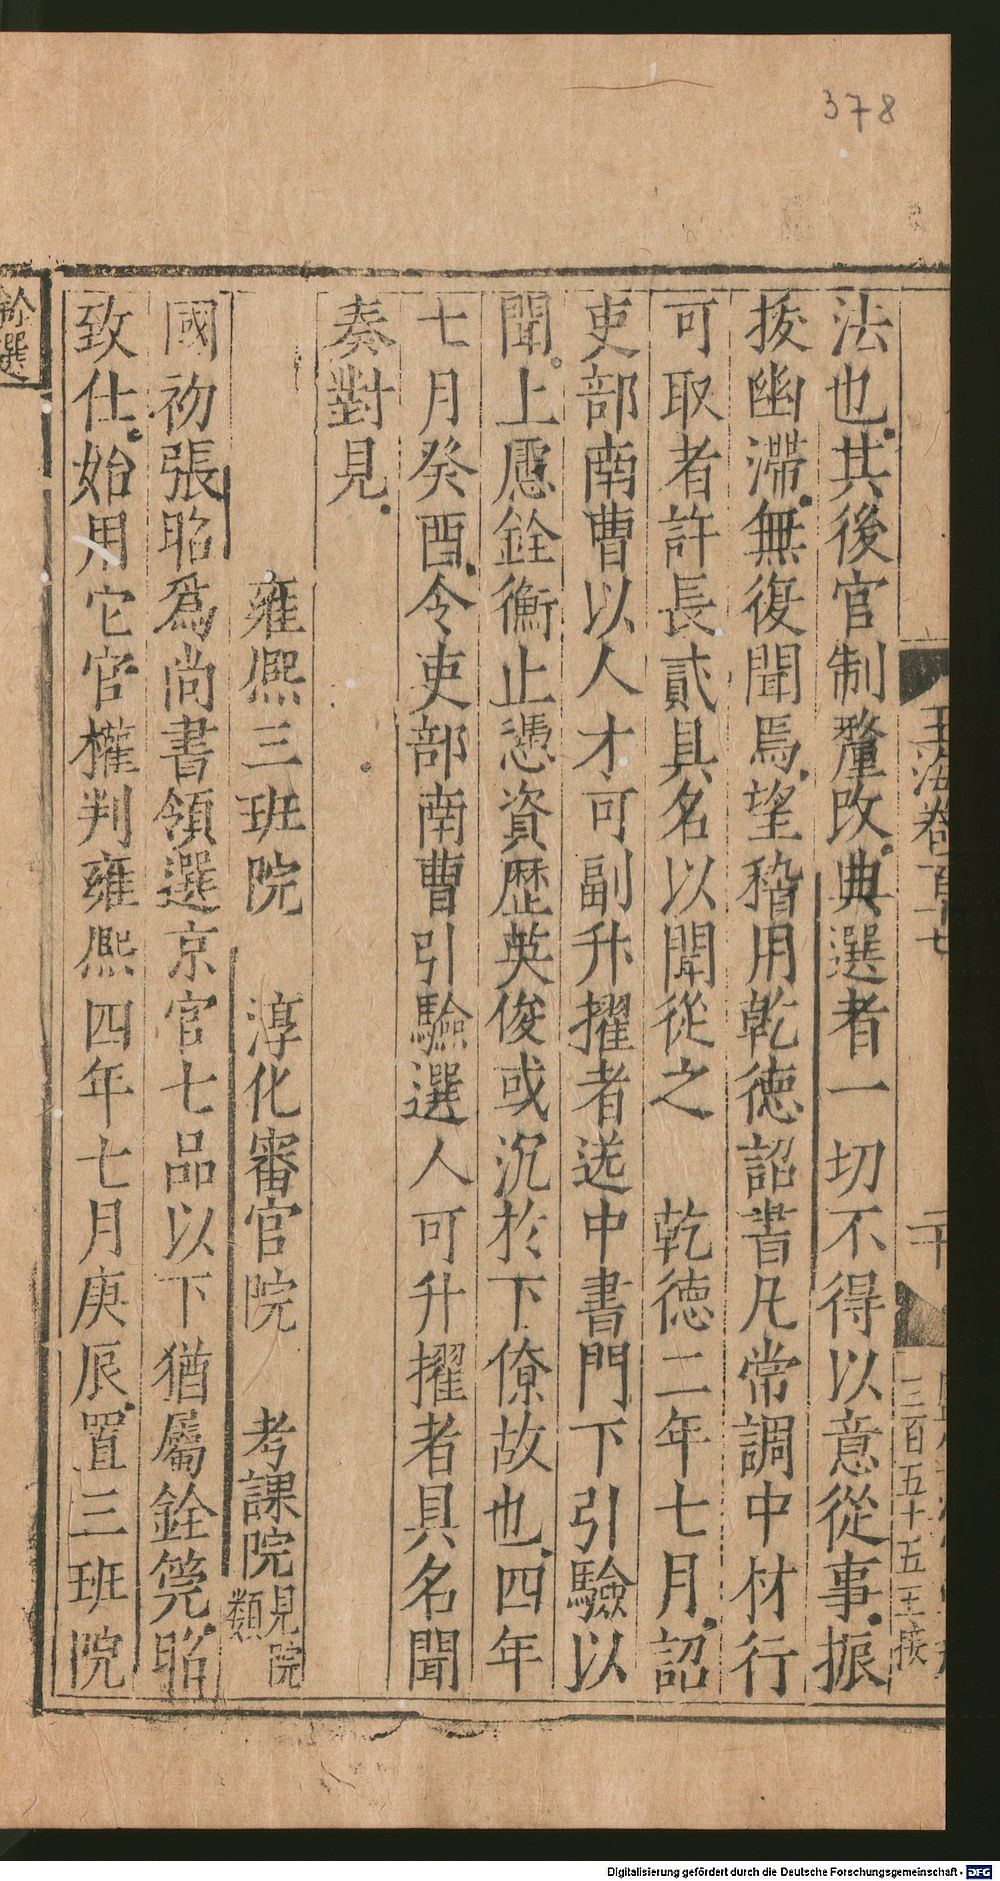 378
玉海卷一百十七
二十
三百五十五
法也其後官制釐改典選者一切不得以意從事振
㧞幽滯無復聞焉望稽用乾德詔書凡常調中材行
可取者許長貳具名以聞從之 乾德二年七月詔
吏部南曹以人才可副升擢者送中書門下引驗以
聞上慮銓衡止憑資歷英俊或沉於下僚故也四年
七月癸酉令吏部南曹引驗選人可升擢者具名聞
奏對見
雍熙三班院 淳化審官院 考課院見院類
國初張昭爲尚書領選京官七品以下猶屬銓筦昭
致仕始用它官權判雍熙四年七月庚辰置三班院
銓選
Digitalisierung gefördert durch die Deutsche Forschungsgemeinschaft - DFG